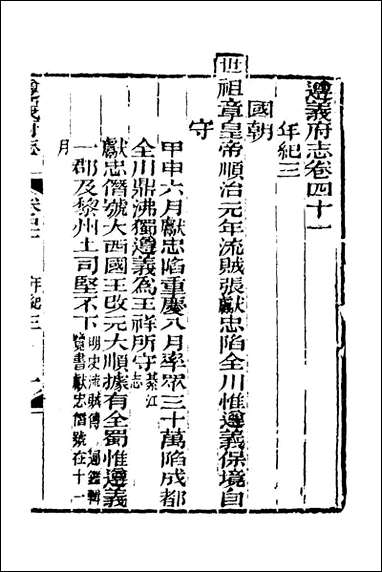 遵義府志卷四十一
年紀三
國朝
世祖章皇帝順治元年流賊張獻忠陷全川惟遵義保境自
守
甲申六月獻忠陷重慶八月率眾三十萬陷成都
全川鼎沸獨遵義為王祥所守綦江志
獻忠僭號大西國王改元大順據有全蜀惟遵義
一郡及黎州土司堅不下明史流賊傳 通鑑輯覽書獻忠僭號在十一
月
遵義府志
卷四十一 年紀三
一